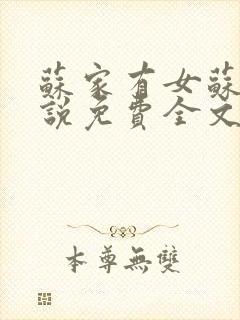 蘇家有女蘇
說免費全文
本尊無雙